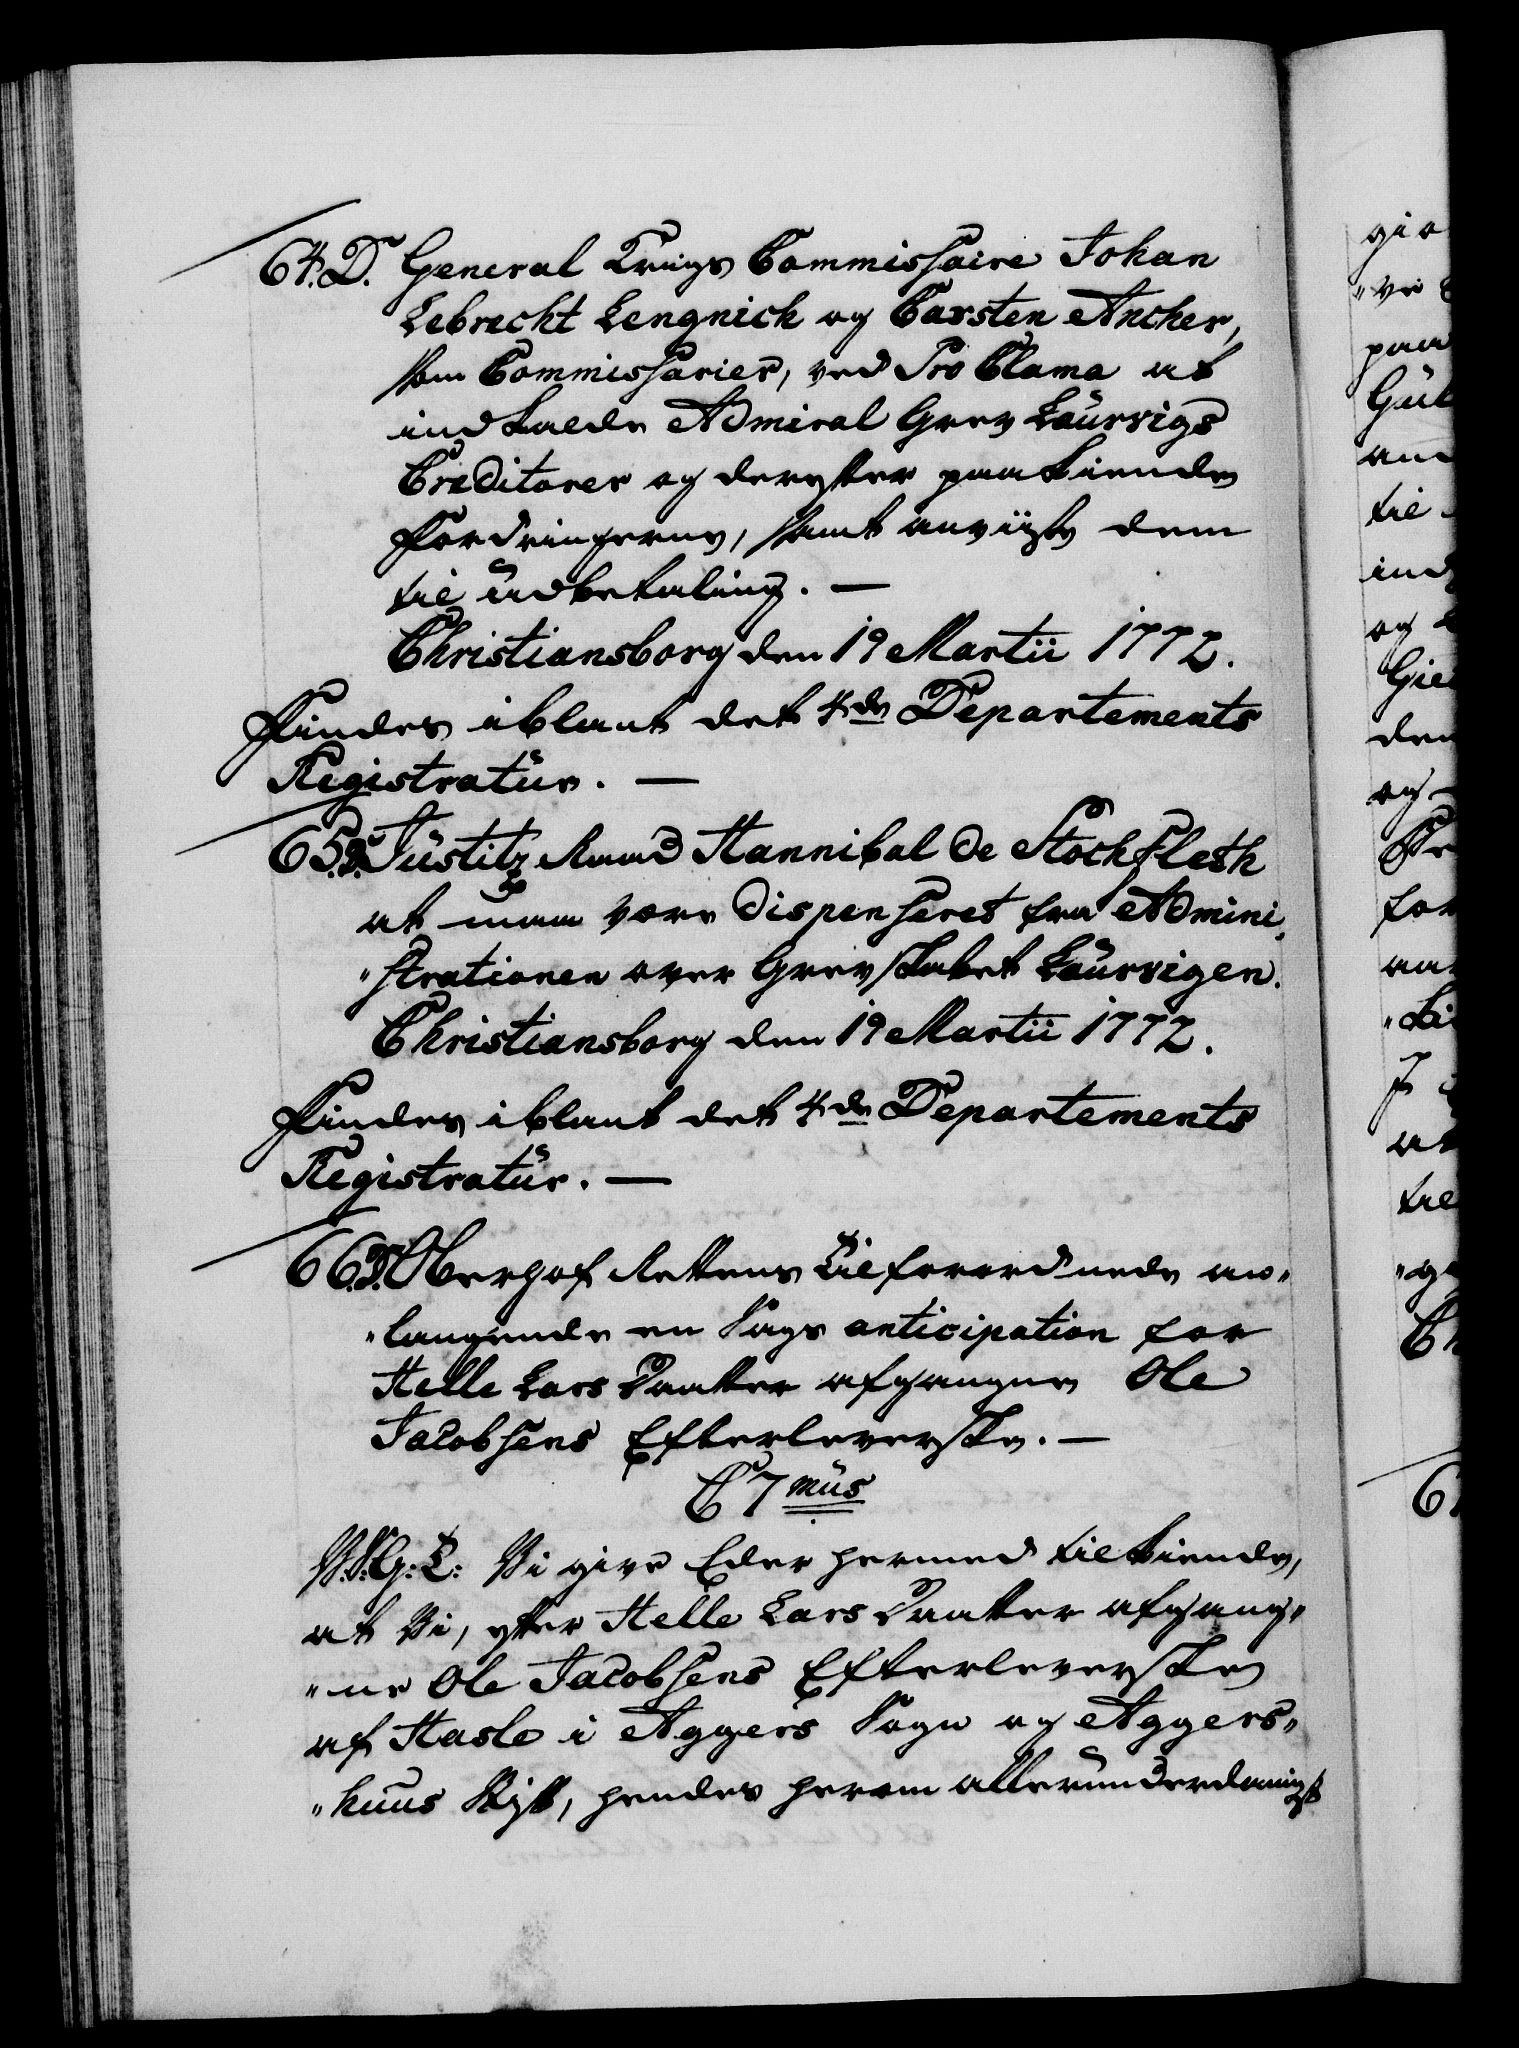 64. D. General Krigs Commissaire Johan
Lebrecht Lengnick og Carsten Ancher,
som Commissarier, ved Pro Clama at
indkalde Admiral Grev Laurvigs
Creditorer og derefter paakiende
Fordringerne, samt anviise dem
til udbetaling. —
Christiansborg den 19 Martii 1772.
Findes iblant det 4de Departements
Registratur. —
65. D. Justitz Raad Hannibal de Stockfleth
at maa være dispenseret fra Admini„
„strationen over Grevskabet Laurvigen.
Christiansborg den 19 Martii 1772.
Findes iblant det 4de Departements
Registratur. —
66. D. Oberhof Rettens Tilforordnede an„
„langende en Sags anticipation for
Helle Lars Daatter afgangne Ole
Jacobsens Efterleverske. —
C 7mus
V.S.G.T: Vi give Eder hermed tilkiende,
at Vi, efter Helle Lars Daatter afgang„
„ne Ole Jacobsens Efterleverske
af Hasle i Aggers Sogn og Aggers„
„huus Stift, hendes herom allerunderdanigst